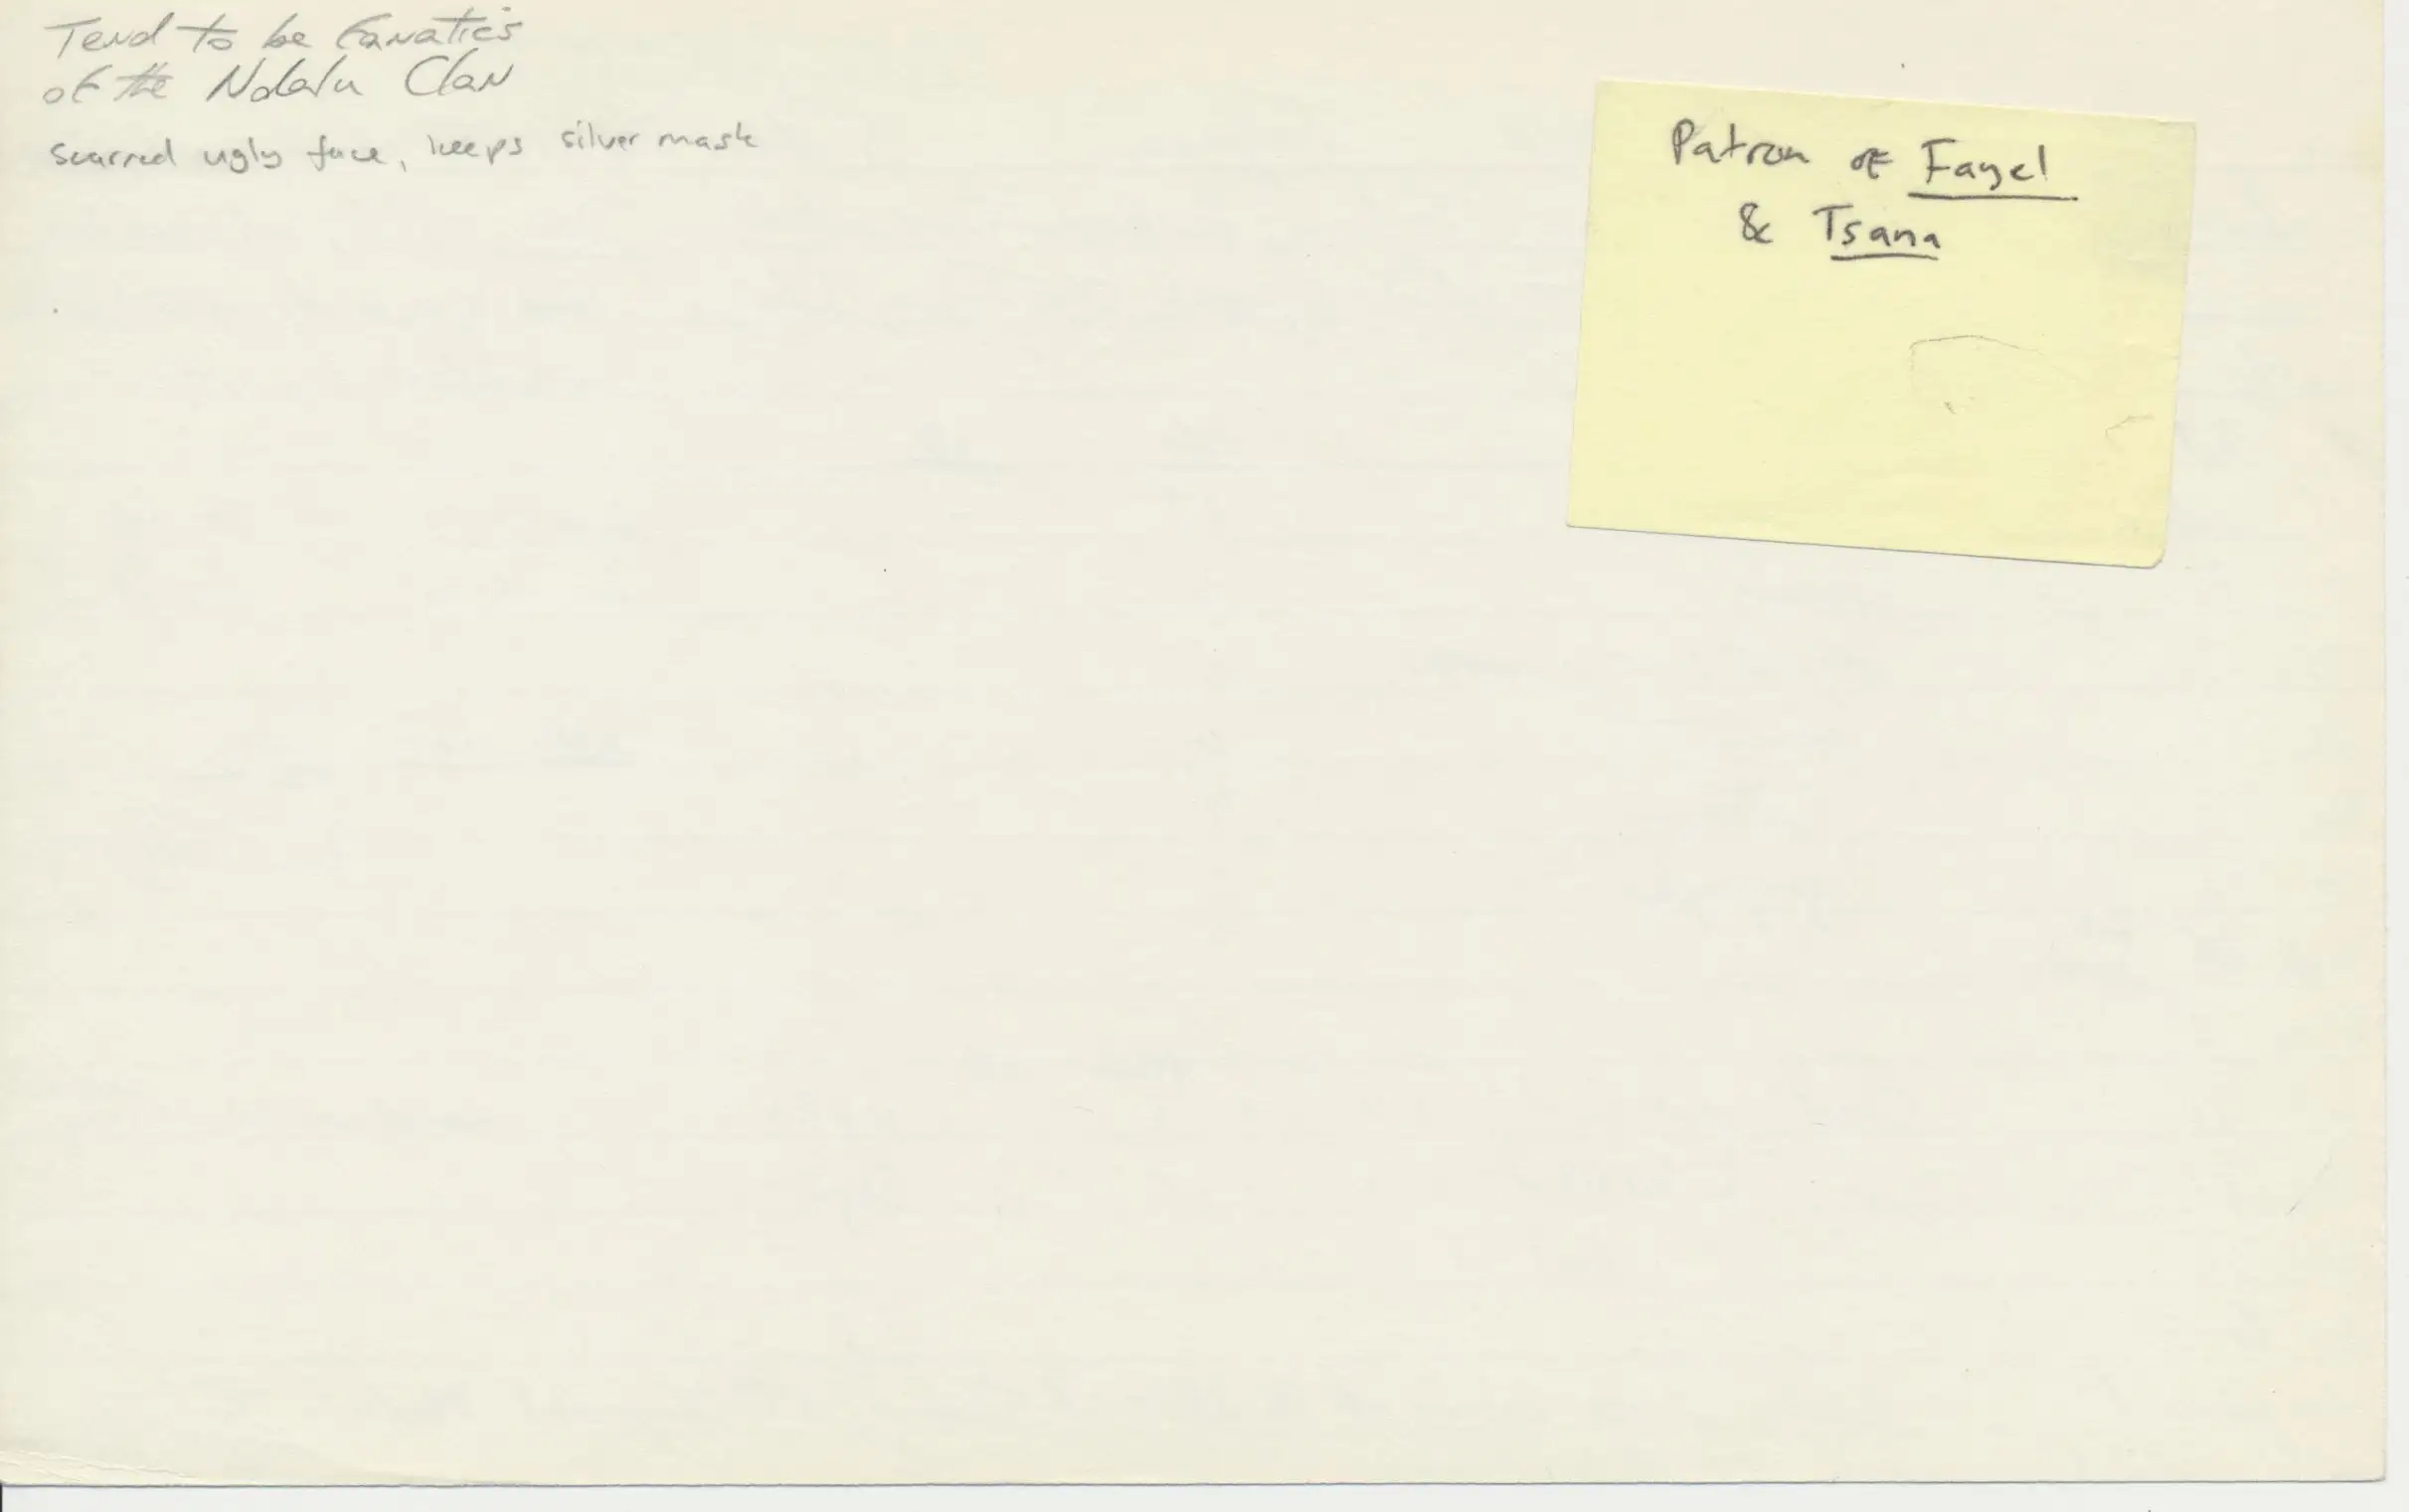 Tend to be fanatics
of the Clan
scarred ugly face, keeps silver mask
Patron of Fayel
& Tsana